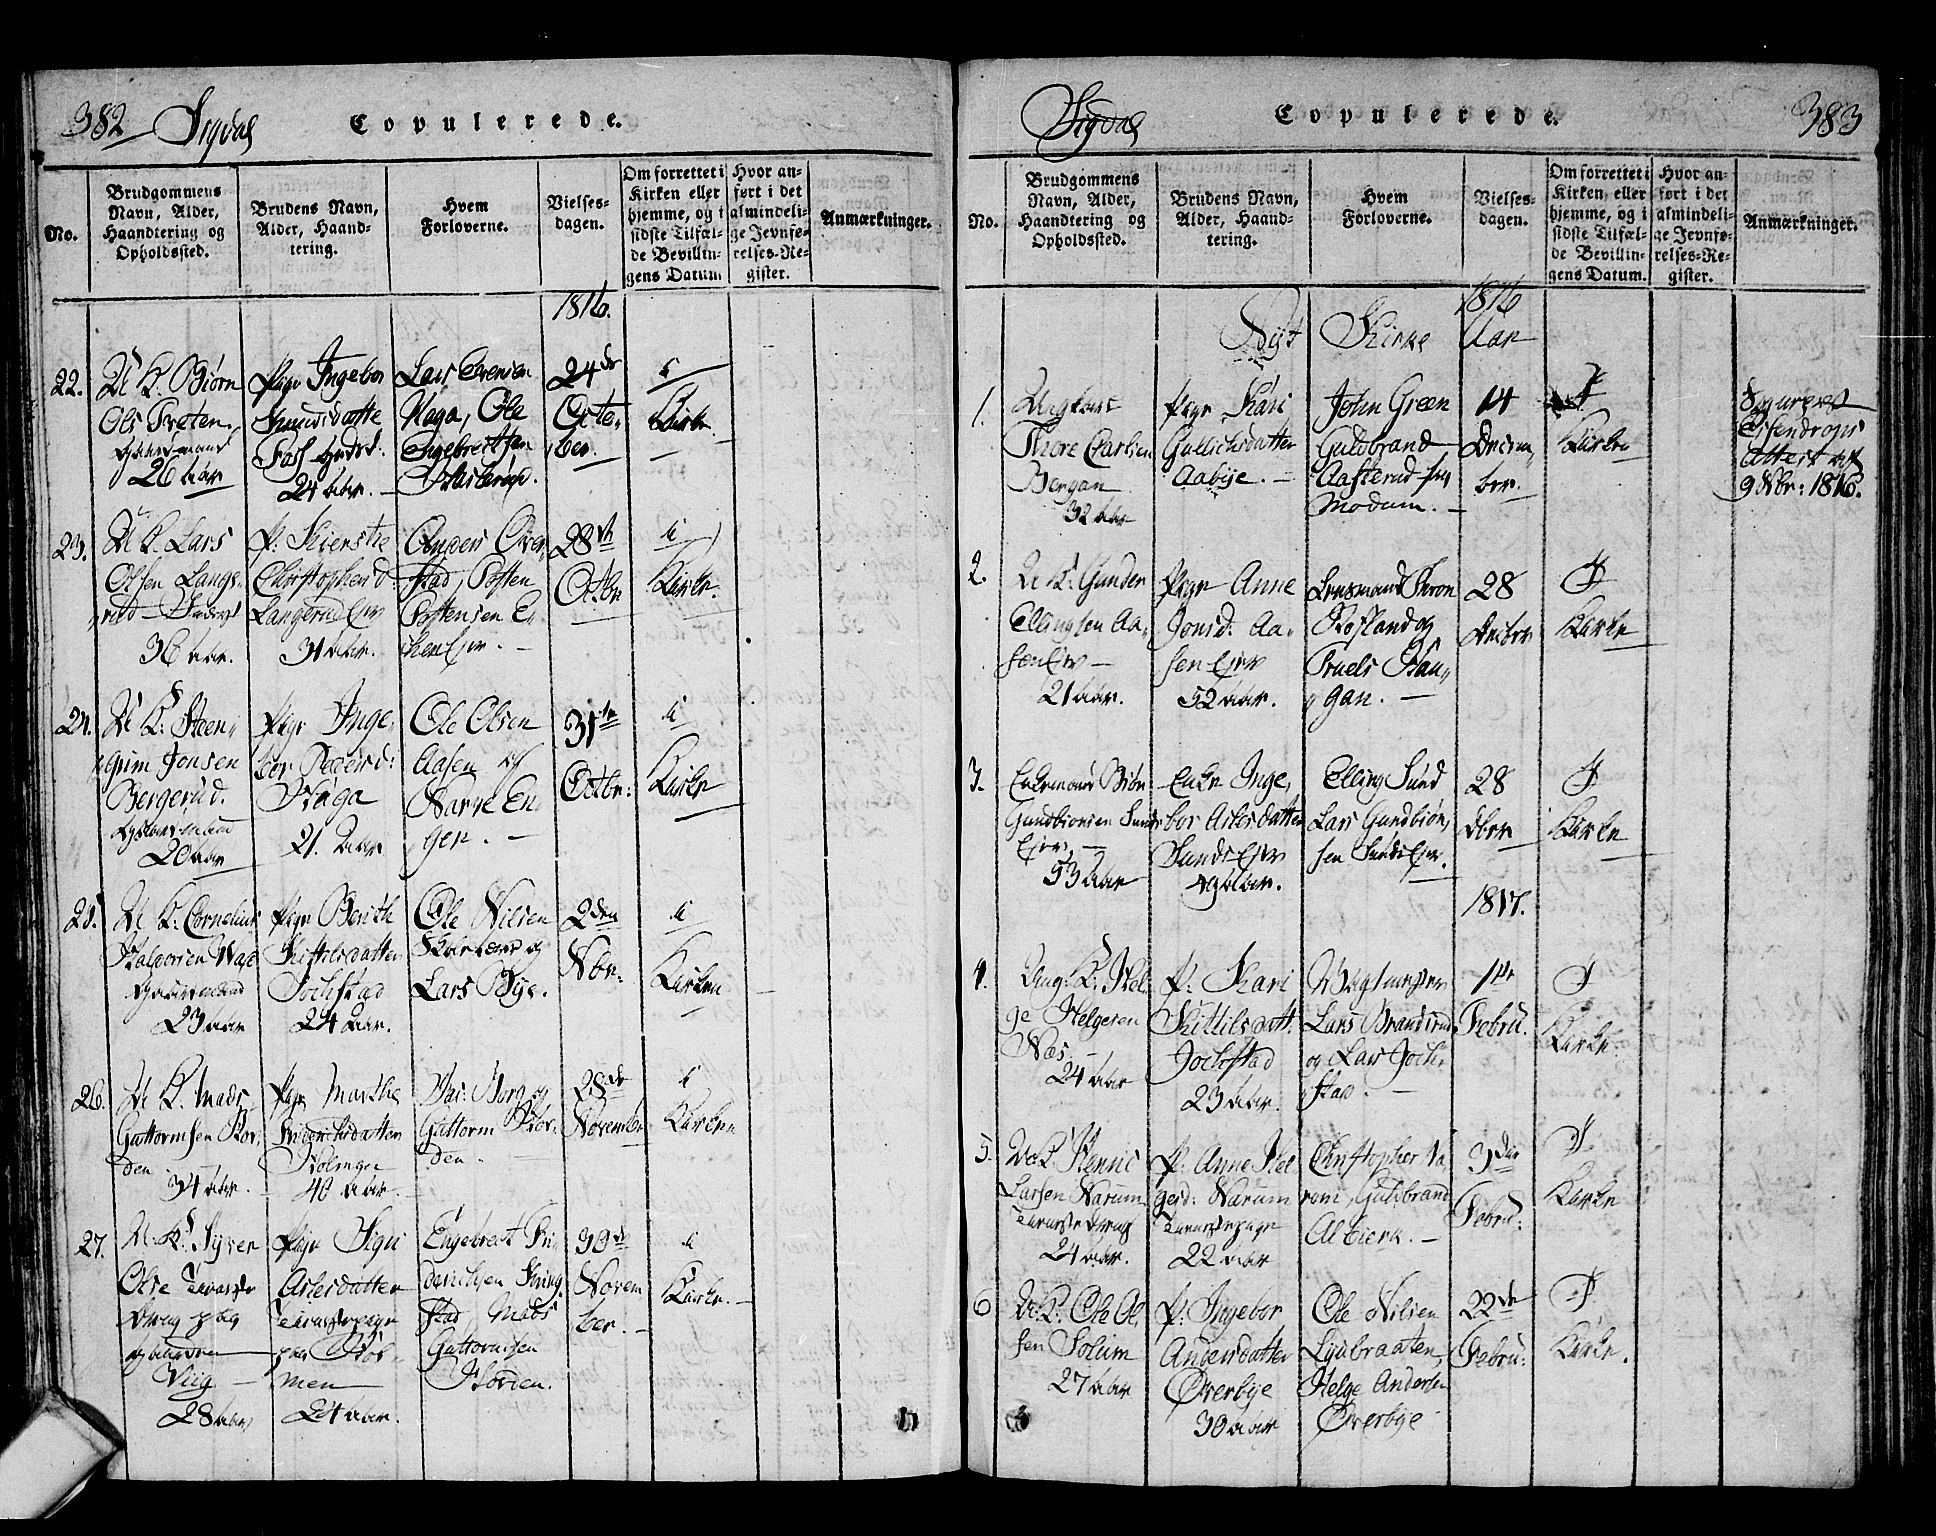 382 Sigdal Copulerede.
No.
Brudgommens
Navn, Alder,
Haandtering og
Opholdssted.
Brudens Navn,
Alder, Haand-
tering.
Hvem
Forloverne.
Vielses-
dagen.
Om forrettet i
Kirken eller
hjemme, og i
sidste Tilfæl-
de Bevillin-
gens Datum
Hvor an-
ført i det
almindeli-
ge Jevnfø-
relses-Re-
gister.
Anmærkninger.
1816.
22.
U K. Biørn
Ols Træten
Gaardmand
26 aar
Pige Ingebor
24 aar.
Lars Evensen
Haga, Ole
Ingebrechtsen
24de
Octo-
ber.
i
Kirke.
23.
U K. Lars
Olsen Langs-
rud
36 aar.
P. Kierstie
Christophersd.
Langerud Eier
31 aar.
Anders Over-
stad, Posten
Postensen E-
Eier.
28de
Octbr
i
Kirke.
24.
U K. Steen-
grim Jonsen
Bergerud.
20 aar
Pige Inge-
bor Pedersd:
Haga
21. Aar
Ole Olsen
Aasen og
Narve En
ger.
31te
Octbr:
i
Kirke
25.
U K: Cornelius
Halvorsen
23 aar
Pige Berith
Kittilsdatter
Jochstad
24 Aar.
Ole Nilsen
og
Lars Bye.
2den
Nbr.
i
Kirken
26.
U K. Mads
Guttormsen Hor-
den
34 aar.
Pige Marthe
Friderichsdatter
Holmen
40 aar.
Guttorm Hor-
den.
28de
November
i
Kirken
27.
U. K. Syver
Olse
28 aar
Pige Sigri
Aslesdatter
men
24 aar.
Engebret Fri-
derichsen Kring-
stad, Mads
Guttormsen
Horden.
30de
Novem
ber.
i
Kirke.
Sigdal Copulerede. 383
No.
Brudgommens
Navn, Alder,
Haandtering og
Opholdssted.
Brudens Navn,
Alder, Haand-
tering.
Hvem
Forloverne.
Vielses-
dagen.
Om forrettet i
Kirken, eller
hjemme, og i
sidste Tilfæl-
de Bevillin-
gens Datum.
Hvor an-
ført i det
almindeli-
ge Jevnfø-
relses-Re-
gister.
Anmærkninger.
1816
Nyt Kirke Aar
1.
Ungkarl
Thore Carlsen
Bergan
32 aar
Pige Kari
Gullichsdatter
Aabye.
John Green
Guldbrand
Aasterud fra
Modum.
14
Decem-
ber
I
Kirken
Attest af
9 Nbr: 1816.
2.
U K: Gunder
Ellingsen Aa-
sen Eier
21 aar.
Pige Anne
Jonsd. Aa-
sen Eier
52 aar.
Lensmand Thron
Rosland og
Truels Hau-
gan.
28
Decbr
I
Kirke
3.
Enkemand Biørn
Gundbiørnsen Sunds
Eier
53 aar
Enke Inge-
bor Aslesdatter
Sunds Eier
Elling Sund
Lars Gundbiørn-
sen Sunds Eier.
28
dbr
I
Kirke
1817.
4.
Ung: K: Hel-
ge Helgesen
Næs
24 aar
P. Kari
Kittilsdatt.
Jochstad
23 aar.
Lars Brandsrud
og Lars Joch-
stad.
1te
Febru.
I
Kirke.
5.
U K. Henric
Larsen Narum
24 aar.
P. Anne Hel
gesd: Narum
22 aar
Christopher Na
rum, Guldbrand
Albierk.
3die
Febru:
I
Kirke
6
U: K. Ole Ol-
sen Solum
27 aar
P. Ingebor
Andersdatter
Overbye
30 aar
Ole Nilsen
Lydbraaten,
Helge Andersen
Overbye
22de
Febru:
I
Kirke.